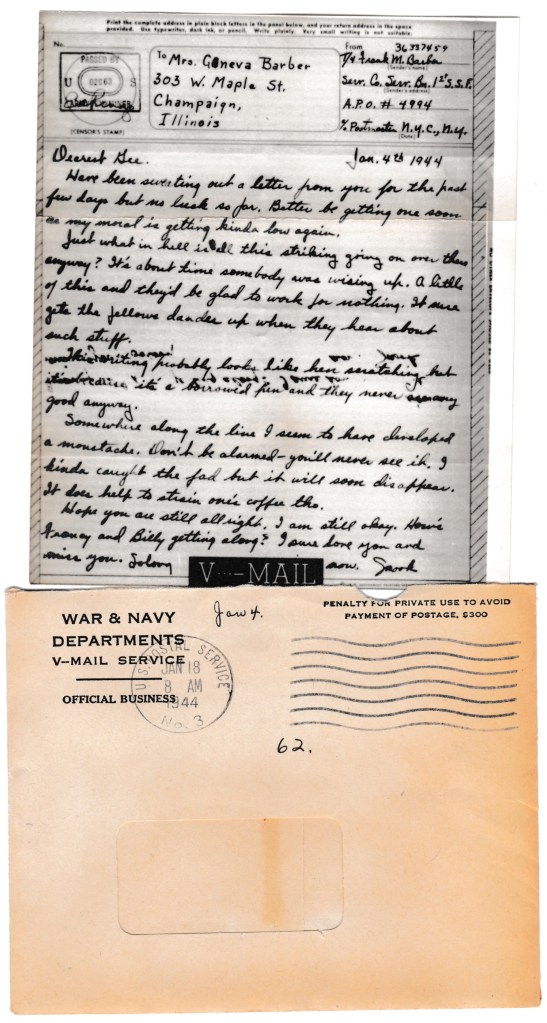 Print the complete address in plain block letters in the panel below, and your return address in the space
provided. Use typewriter, dark ink, or pencil. Write plainly. Very small writing is not suitable.
No.
PASSED BY
U S
(CENSOR'S STAMP)
To Mrs. Geneva Barber
303 W. Maple St.
Champaign,
Illinois
From 36337459
T/4 Frank M. Barber
(Sender's name)
Serv. Co. Serv. Bn. 1st S.S.F.
(Sender's address)
A.P.O. # 4994
% Postmaster N.Y.C., N.Y.
(Date)
Jan. 4th 1944
Dearest Gee.
Have been sweating out a letter from you for the past
few days but no luck so far. Better be getting one soon
my moral is getting kinda low again.
Just what in hell is all this striking going on over there
anyway? It's about time somebody was wising up. A little
of this and they'd be glad to work for nothing. It sure
gets the fellows dander up when they hear about
such stuff.
This writing probably looks like hen scratching but
it's a borrowed pen and they never
good anyway.
Somewhere along the line I seem to have developed
a moustache. Don't be alarmed – you'll never see it. I
kinda caught the fad but it will soon disappear.
It does help to strain one's coffee tho.
Hope you are still allright. I am still okay. How's
and Billy getting along? I sure love you and
miss you. Solong now.
V···—MAIL
WAR & NAVY
DEPARTMENTS
V--MAIL SERVICE
OFFICIAL BUSINESS
Jan 4.
PENALTY FOR PRIVATE USE TO AVOID
PAYMENT OF POSTAGE, $300
U.S. POSTAL SERVICE
JAN 18
8 AM
1944
No. 3
62.